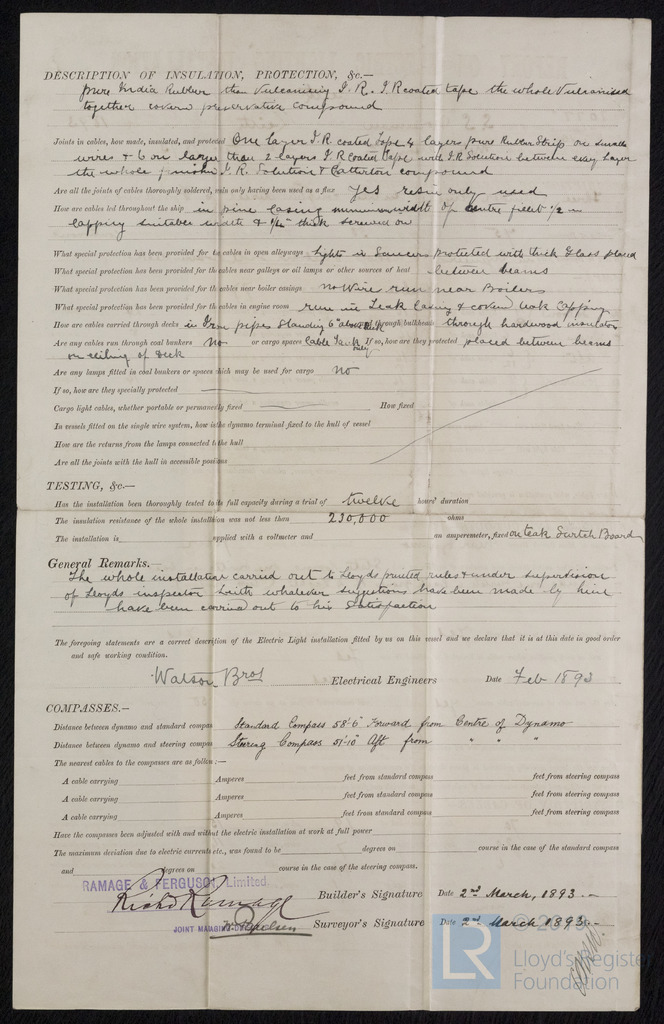 DESCRIPTION OF INSULATION, PROTECTION, &c.—
pure India Rubber then Vulcanising I.R. I.R coated tape the whole Vulcanised
together covered preservative compound
Joints in cables, how made, insulated, and protected One layer I.R. coated Tape 4 layers pure Rubber Strip on smaller
wires & 6 on larger then 2 layers I.R Coated Tape with I.R Solution between every layer
the whole finish I.R. Solution & Catterton compound
Are all the joints of cables thoroughly soldered, resin only having been used as a flux yes resin only used
How are cables led throughout the ship in pine casing minimum width of centre fillet 1/2 in
capping suitable width & 1/4" thick screwed on
What special protection has been provided for the cables in open alleyways Lights in Saucers protected with thick Glass placed
What special protection has been provided for the cables near galleys or oil lamps or other sources of heat between beams
What special protection has been provided for the cables near boiler casings no Wire run near Boilers
What special protection has been provided for the cables in engine room run in Teak Casing & covered teak Capping
How are cables carried through decks in Iron pipes Standing 6" above deck through bulkheads through hardwood insulators
Are any cables run through coal bunkers No or cargo spaces Cable Tank only If so, how are they protected placed between beams
on ceiling of Deck
Are any lamps fitted in coal bunkers or spaces which may be used for cargo No
If so, how are they specially protected
Cargo light cables, whether portable or permanently fixed How fixed
In vessels fitted on the single wire system, how is the dynamo terminal fixed to the hull of vessel
How are the returns from the lamps connected to the hull
Are all the joints with the hull in accessible positions
TESTING, &c.—
Has the installation been thoroughly tested to its full capacity during a trial of twelve hours' duration
The insulation resistance of the whole installation was not less than 230,000 ohms
The installation is supplied with a voltmeter and an amperemeter, fixed on teak Switch Board
General Remarks.—
The whole installation carried out to Lloyds printed rules & under supervision
of Lloyds inspector with whatever suggestions have been made by him
have been carried out to his Satisfaction
The foregoing statements are a correct description of the Electric Light installation fitted by us on this vessel and we declare that it is at this date in good order
and safe working condition.
Watson Bros Electrical Engineers Date Feb 1893
COMPASSES.—
Distance between dynamo and standard compass Standard Compass 58'-6" Forward from Centre of Dynamo
Distance between dynamo and steering compass Steering Compass 51'-10" Aft from " " "
The nearest cables to the compasses are as follows:—
A cable carrying Amperes feet from standard compass feet from steering compass
A cable carrying Amperes feet from standard compass feet from steering compass
A cable carrying Amperes feet from standard compass feet from steering compass
Have the compasses been adjusted with and without the electric installation at work at full power
The maximum deviation due to electric currents etc., was found to be degrees on course in the case of the standard compass
and degrees on course in the case of the steering compass.
RAMAGE & FERGUSON, Limited,
Richd Ramage Builder's Signature Date 2nd March, 1893.—
JOINT MANAGING Surveyor's Signature Date 2nd March 1893.—
LR
Lloyd's Register
Foundation